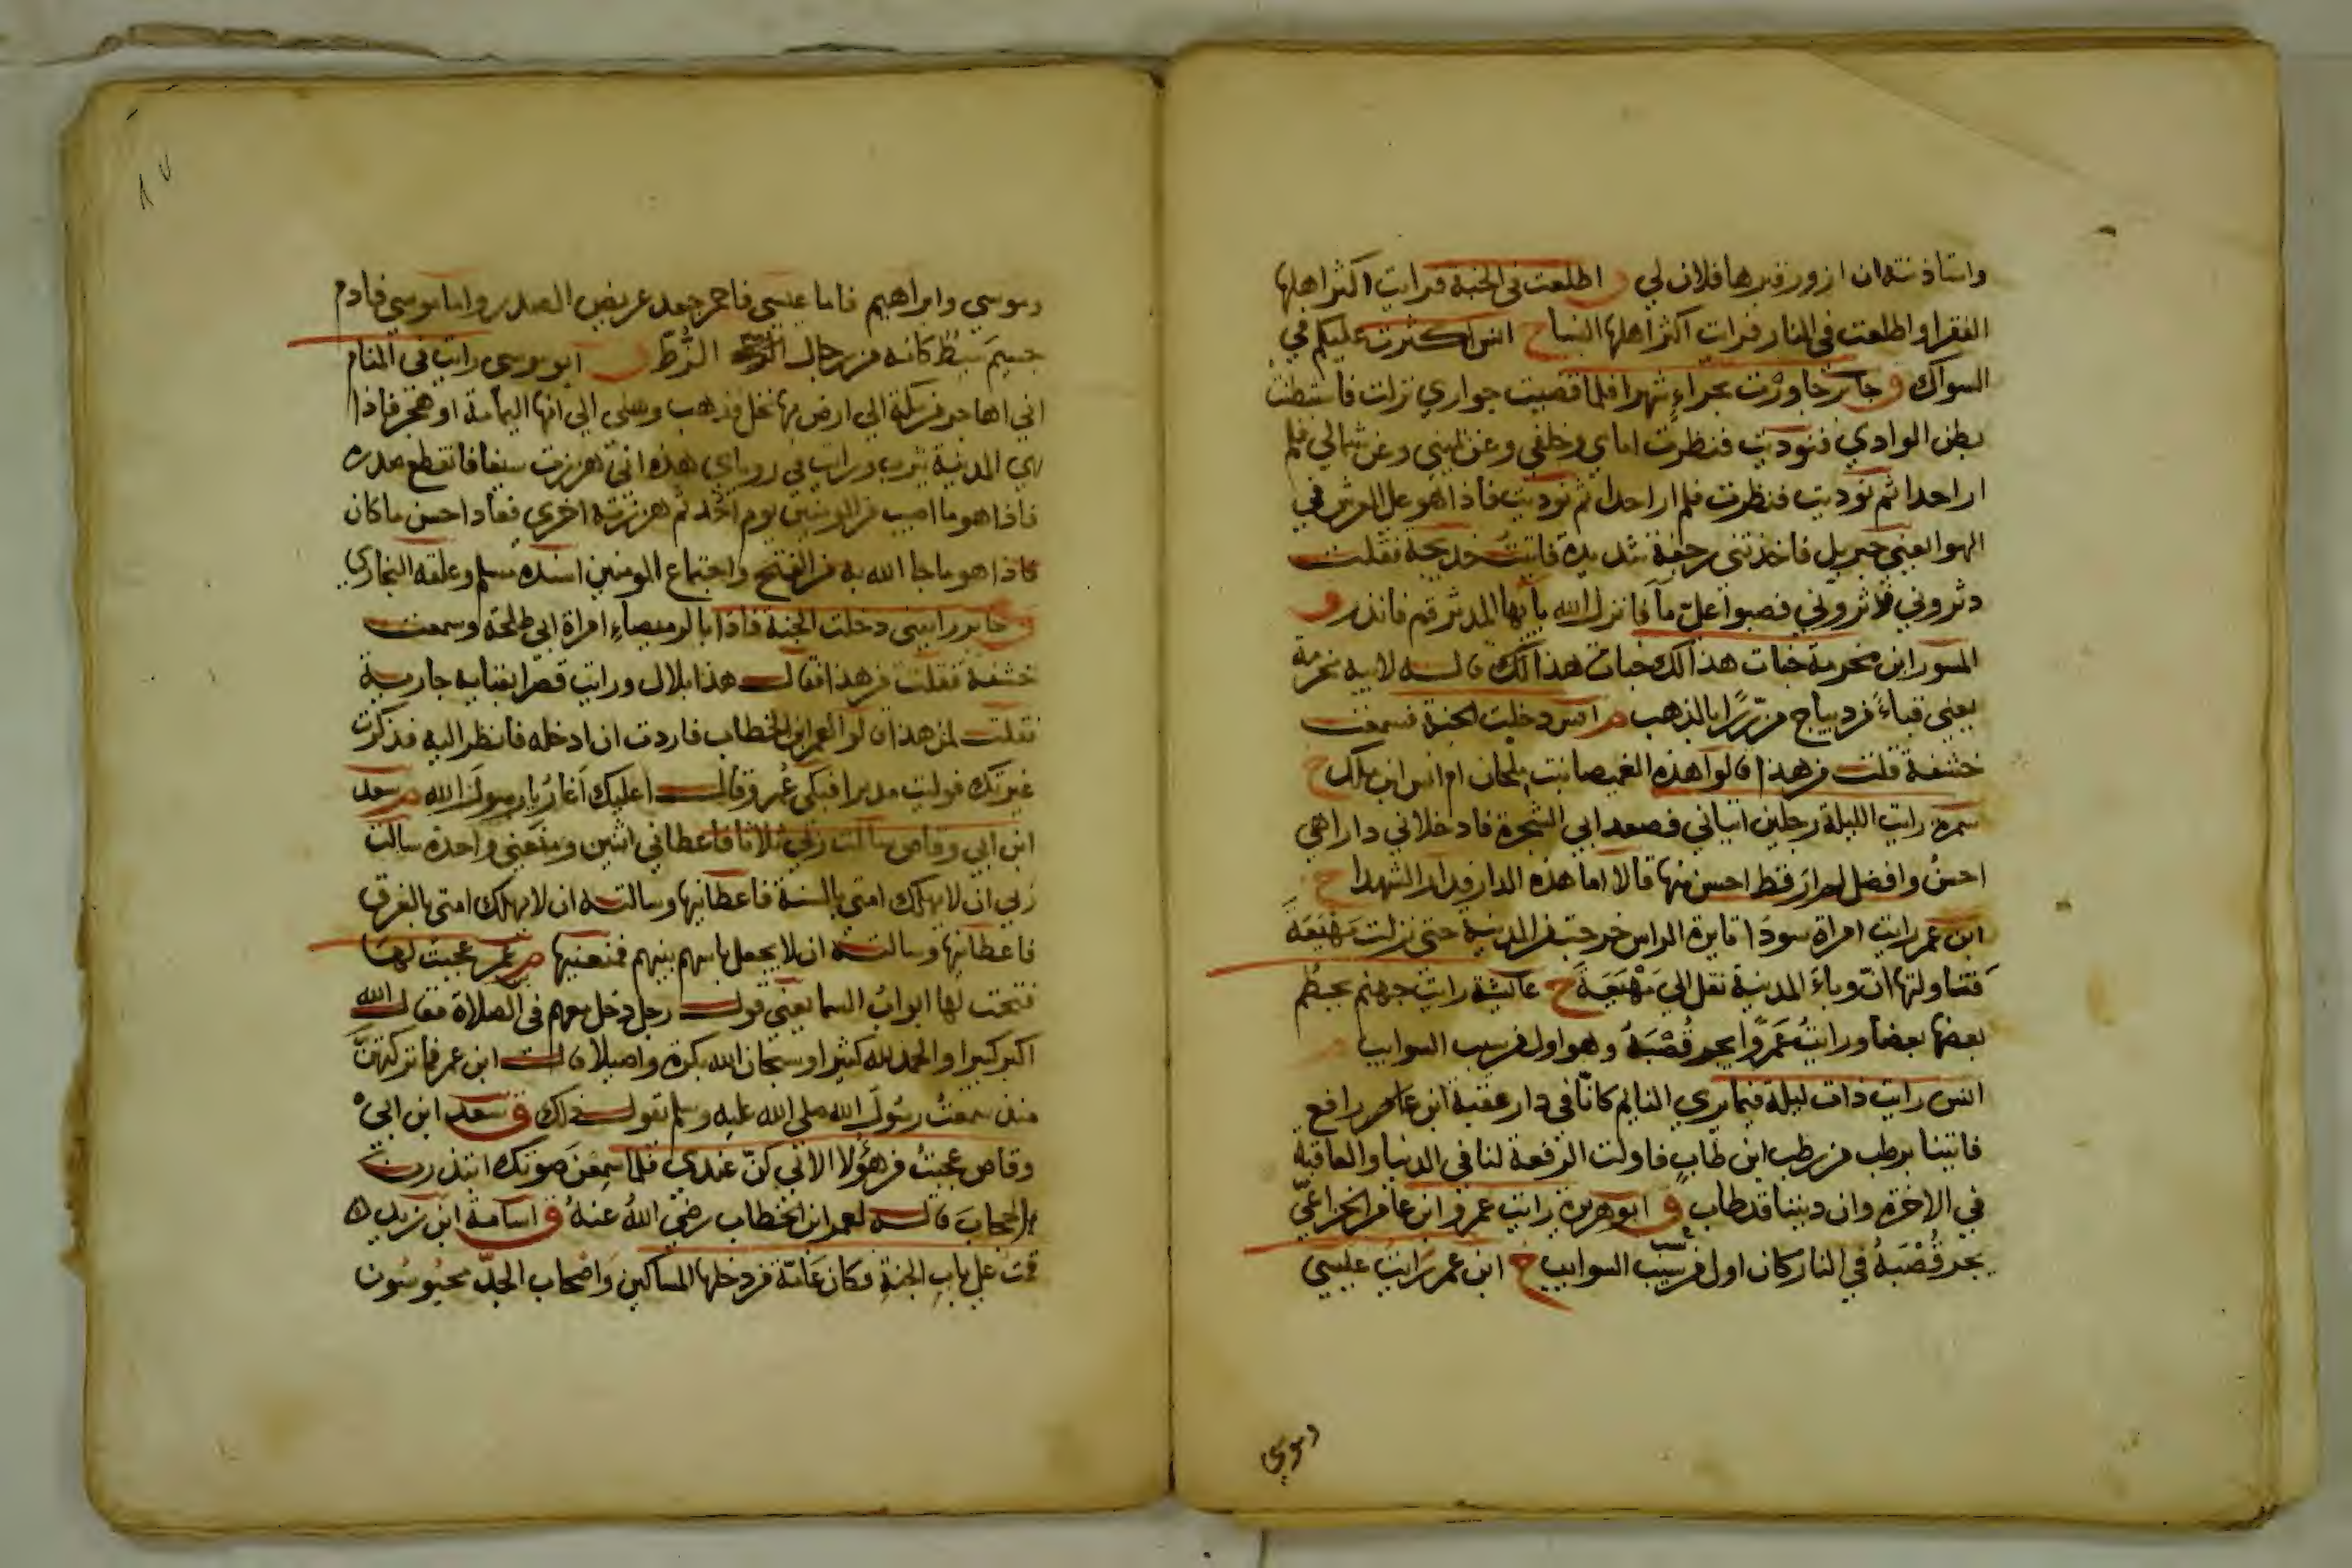 واستاذنته ان ازور قبرها فلاذن لي ق اطلعت في الجنة فرايت اكثر اهلها
الفقرا واطلعت في النار فرات اكثر اهلها النساح انس اكثرت عليكم في
السواك ق جابر جاورت بحراءٍ شهرا فلما قضيت جواري نزلت فاستبطنت
بطن الوادي فنوديت فنظرت امامي وخلفي وعن يميني وعن شمالي فلم
ار احدا ثم نوديت فنظرت فلم ار احدا ثم نوديت فاذا هو على العرش في
الهوا يعني جبريل فاخذتني رجفة شديدة فاتيت خديجة فقلت
دثروني فدثروني فصبوا عليّ ماً فانزل الله يا ايها المدثر قم فانذر ق
المسور ابن مخرمة خبات هذا لك خبات هذا لك قاله لابيه مخرمة
يعني قباءً من ديباج مزرّرًا بالذهب م انس دخلت الجنة فسمعت
خشفة قلت من هذا قالوا هذه الغميصا بنت ملحان ام انس ابن ملك خ
سمرة رايت الليلة رجلين اتياني فصعدا بي الشجرة فادخلاني دارا هي
احسن وافضل لم ار قط احسن منها قالا اما هذه الدار فدار الشهدا خ
ابن عمر رايت امراة سودا ثايرة الراس خرجت من المدينة حتى نزلت مَهْيَعَةَ
فتناولتها انّ وباءَ المدينة نقل الي مَهْيَعَةَ خ عائشة رايت جهنم يحطم
بعضها بعضا ورايتُ عَمرًوا يجر قُصْبَهُ وهو اول من سيب السوايب م
انس رايت ذات ليلة فيما يري النايم كانّا في دار عقبة ابن عامر رافع
فاتينا برطب من رطب ابن طابٍ فاولت الرفعة لنا في الدنيا والعاقبة
في الاخرة وان ديننا قد طاب ق ابو هريرة رايت عمرو ابن عامر الخزاعيّ
يجر قُصْبَهُ في النار كان اول من سيّب السوايب خ ابن عمر رايت عيسي
وموسي
وموسي وابراهيم فاما عيسي فاحمر جعد عريض الصدر واما موسي فادم
جسيمَ سبطٌ كانه من رجال الزُّطّ ق ابو موسي رايت في المنام
اني اهاجر من مكة الي ارض بها نخل فذهب وهلي الي انها اليمامة او هجر فاذا
هي المدينة يثرب ورايت في روياي هذه انيّ هززت سيفا فانقطع صدره
فاذا هو ما اصيب من المومنين يوم احُد ثم هززته اخري فعاد احسن ما كان
فاذا هو ما جا الله به من الفتح واجتماع المومنين اسنده مسلم وعلقه البخاري
ق جابر رايتني دخلت الجنة فاذا بالرميصاءِ امراة ابي طلحة وسمعت
خشفة فقلت من هذا فقال هذا بلال ورايت قصرا بفنايه جارية
فقلت لمن هذا قالوا لعمر ابن الخطاب فاردت ان ادخله فانظر اليه فذكرت
غيرتك فوليت مدبرا فبكي عُمر وقال اعليك اَغارُ يا رسولَ الله م سعد
ابن ابي وقاص سالت ربي ثلاثا فاعطاني اثنين ومنعني واحدة سالت
ربي ان لا يهلك امتي بالسنة فاعطانيها وسالته ان لا يهلك امتي بالغرق
فاعطانيها وسالته ان لا يجعل باسهم بينهم فمنعنيها م ابن عمر عجبت لها
فتحت لها ابوابُ السما يعني قول رجل دخل معهم في الصلاة فقال الله
اكبر كبيرا والحمد لله كثيرا وسبحان الله بكرة واصيلا قال ابن عمر فما تركتهنّ
منذ سمعتُ رسولَ الله صلي الله عليه وسلم يقول ذلك ق سعد ابن ابي
وقاص عجبتُ من هؤلا الاتي كنّ عندي فلما سمعْنَ صوتك ابتدرن
الحجابَ قاله لعمر ابن الخطاب رضيَ اللهُ عنهُ ق اسامة ابن زيد
قمت على بابِ الجنةِ فكان عَامّةَ من دخلها المساكين وَاصْحاب الجدّ محبوسُون